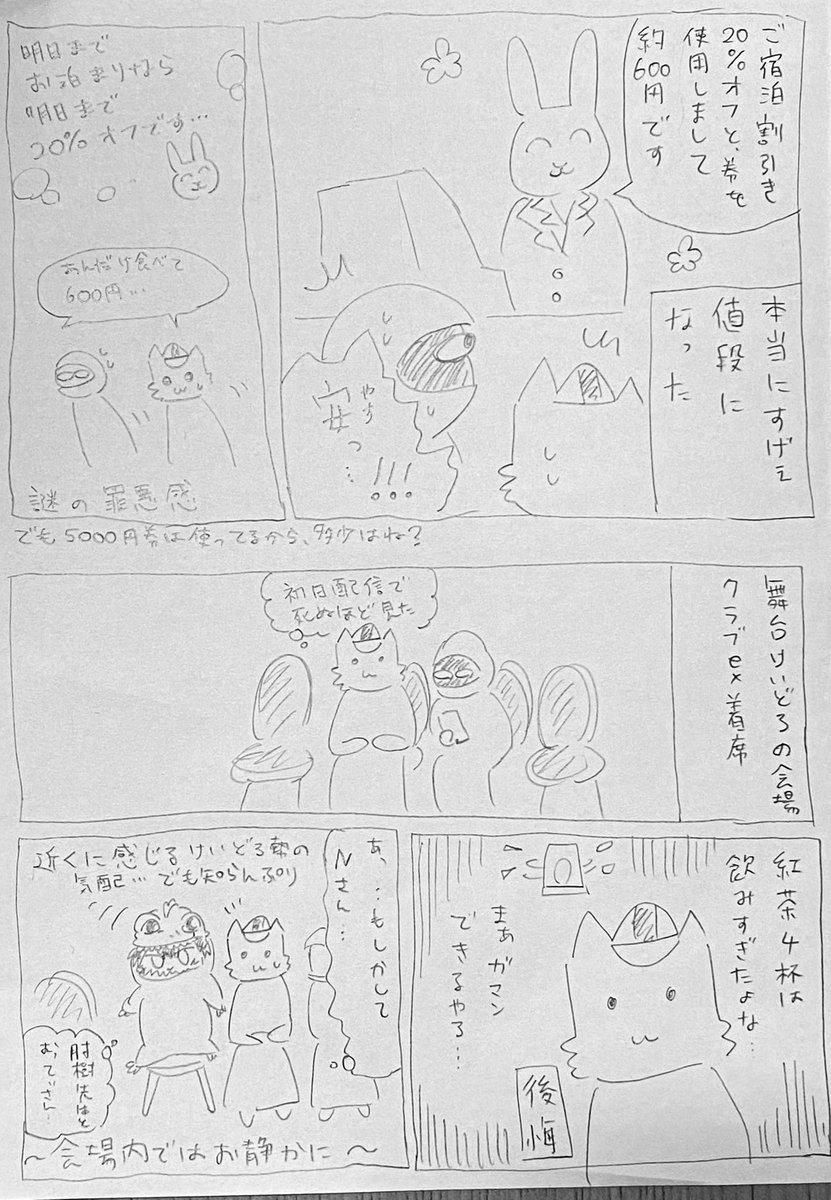 ご宿泊割引き
20%オフと、券を
使用しまして
約600円です
本当にすげぇ
値段に
なった
やす
安っ…!!!
明日まで
お泊まりなら
明日まで
20%オフです…
あんだけ食べて
600円…
謎の罪悪感
でも5000円券は使ってるから、多少はね?
舞台けいどろの会場
クラブex着席
初日配信で
死ぬほど見た
紅茶4杯は
飲みすぎたよな…
まあガマン
できるやろ…
後悔
あ、…もしかして
Nさん…
近くに感じるけいどろ勢の
気配…でも知らんぷり
肘樹先生と
おってぃさん…
~会場内ではお静かに~